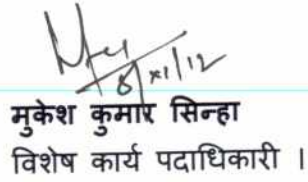 8/XI/12
मुकेश कुमार सिन्हा
विशेष कार्य पदाधिकारी ।